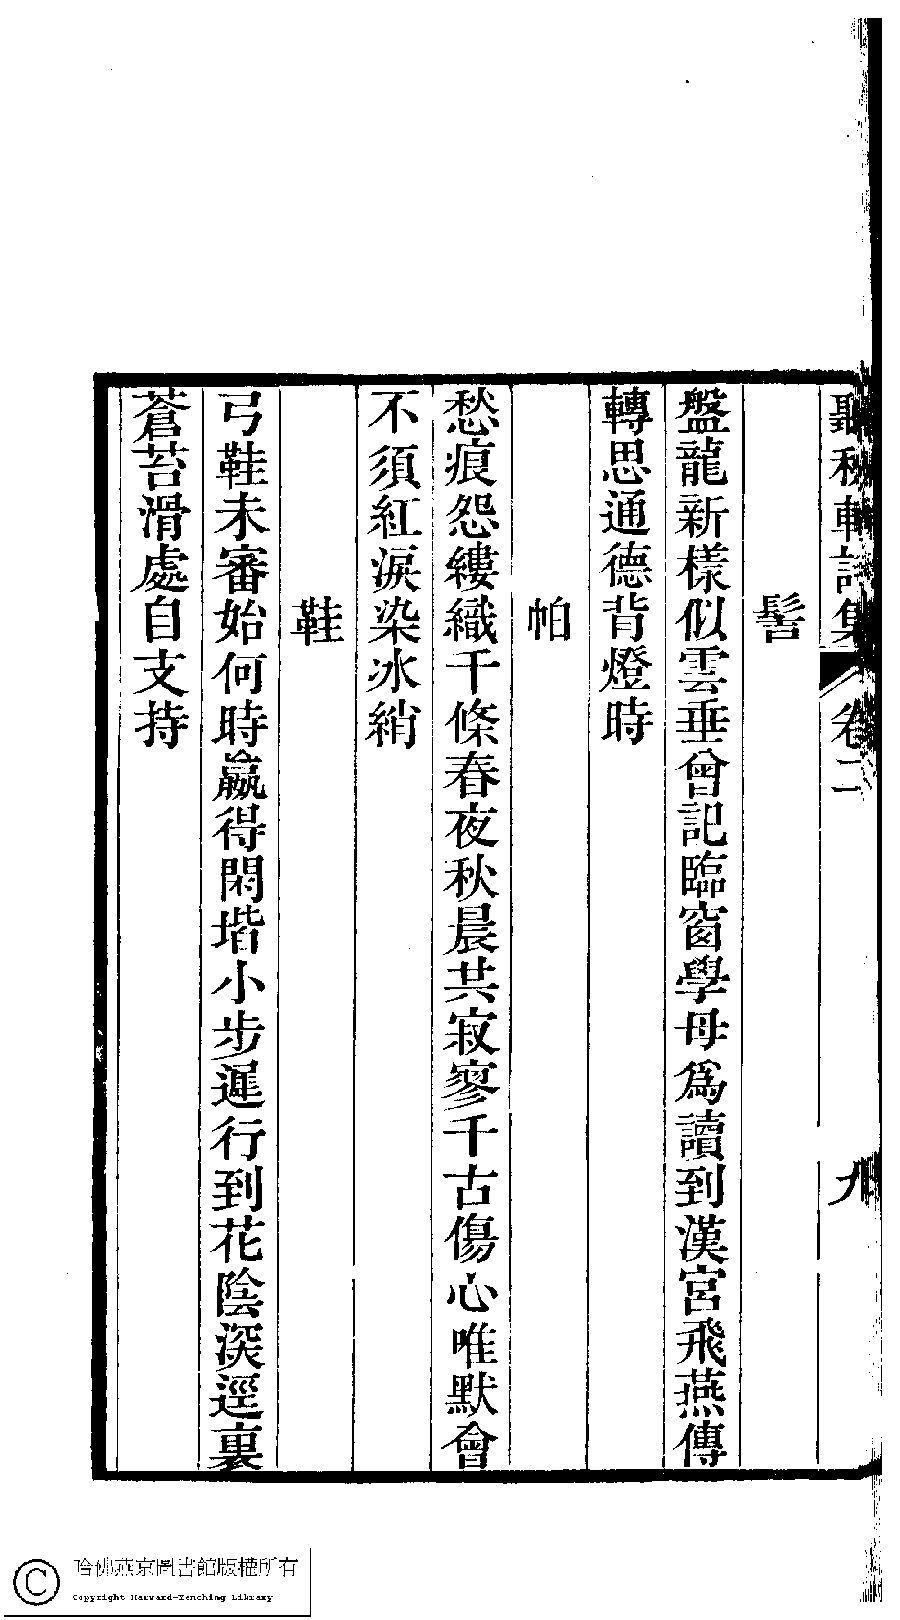 聽秋軒詩集 卷二 九
髻
盤龍新樣似雲垂曾記臨窗學母爲讀到漢宮飛燕傳
轉思通德背燈時
帕
愁痕怨縷織千條春夜秋晨共寂寥千古傷心唯默會
不須紅淚染冰綃
鞋
弓鞋未審始何時贏得閑堦小步遲行到花陰深逕裏
蒼苔滑處自支持
哈佛燕京圖書館版權所有
Copyright Harvard-Yenching Library